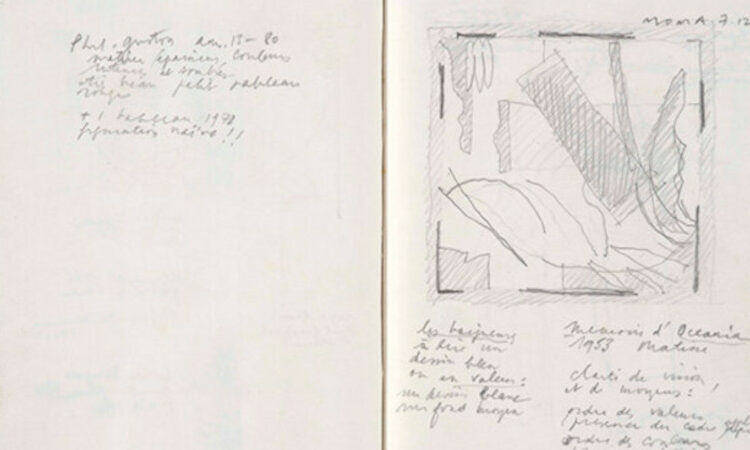 Phil. Guston ann. 13-80
matières épaisses, couleurs
intenses et sombres
très beau petit tableau
rouge
+ 1 tableau 1970
figuration naïve !!
MOMA 7.12
les baigneurs
à lire un
dessin bleu
ou en valeurs :
un dessin blanc
sur fond moyen
Memoris d'Oceania
1953 Matisse
clarté de vision,
et de moyens :
ordre des valeurs
(présence du cadre
ordre des couleurs